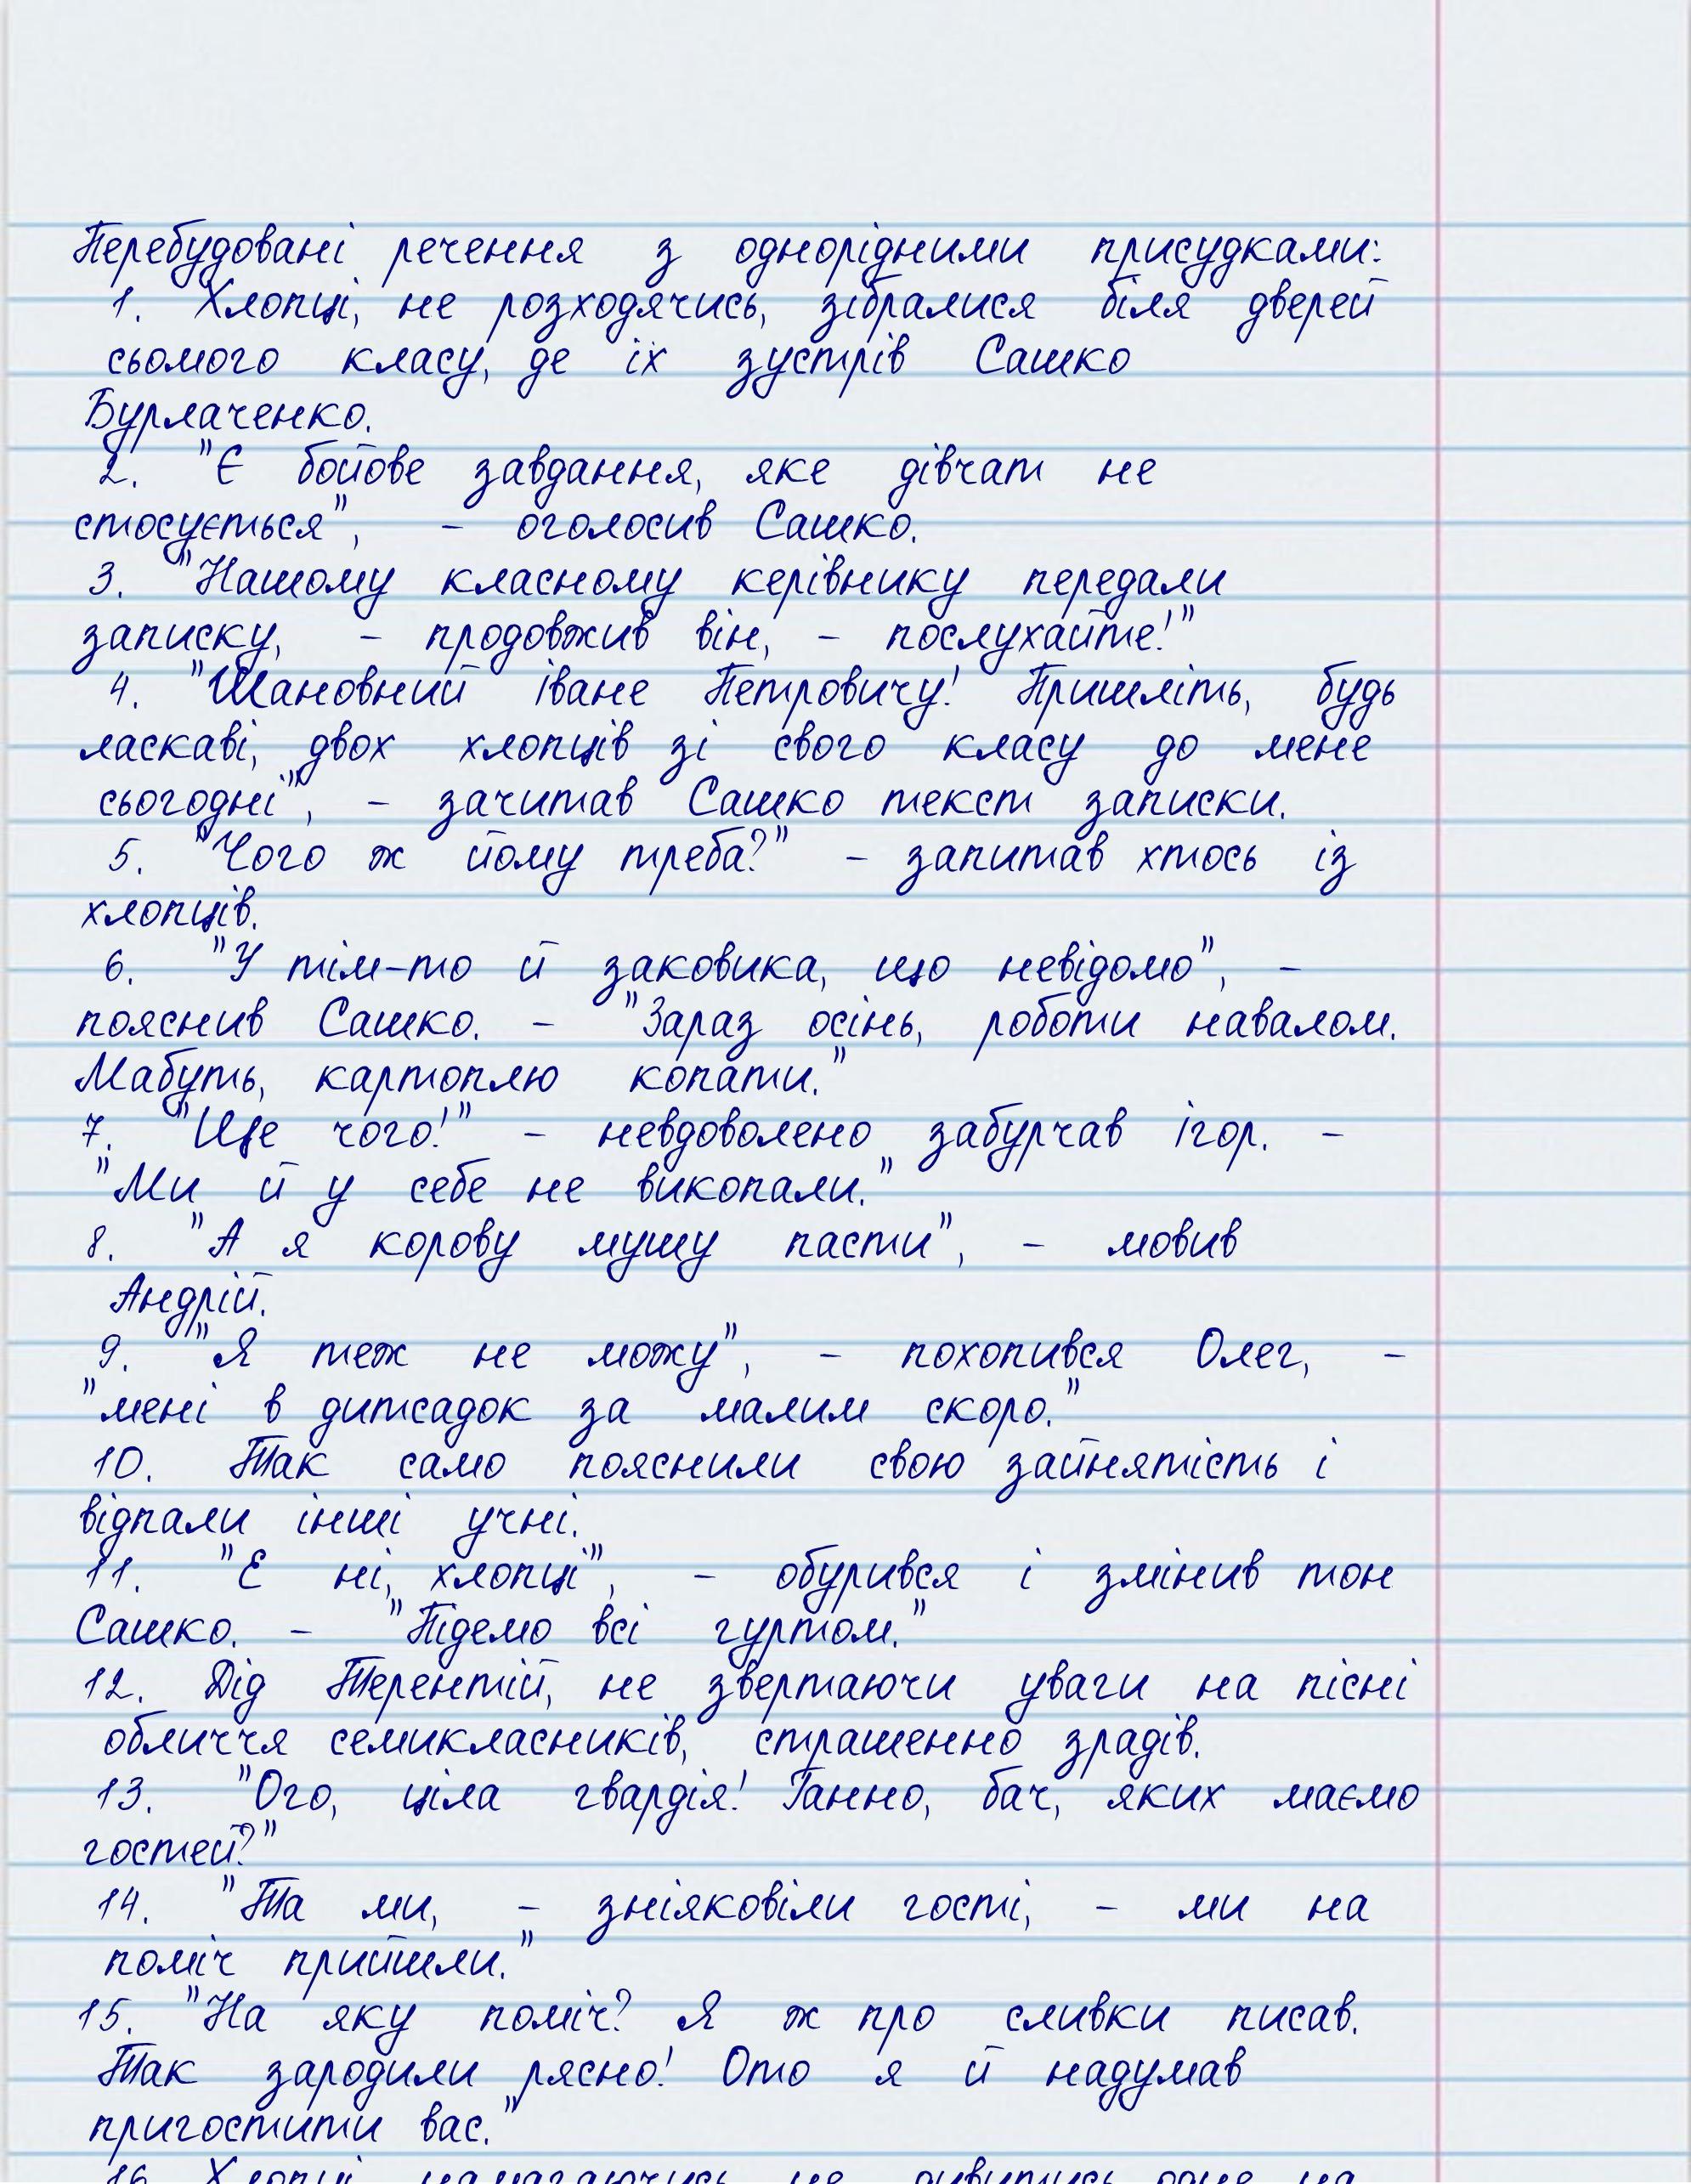 Перебудовані речення з однорідними присудками:
1. Хлопці, не розходячись, зібралися біля дверей
сьомого класу, де їх зустрів Сашко
Бурлаченко.
2. "Є бойове завдання, яке дівчат не
стосується", – оголосив Сашко.
3. "Нашому класному керівнику передали
записку, – продовжив він, – послухайте!"
4. "Шановний Іване Петровичу! Пришліть, будь
ласкаві, двох хлопців зі свого класу до мене
сьогодні", – зачитав Сашко текст записки.
5. "Чого ж йому треба?" – запитав хтось із
хлопців.
6. "У тім-то й заковика, що невідомо", –
пояснив Сашко. – "Зараз осінь, роботи навалом.
Мабуть, картоплю копати."
7. "Ще чого!" – невдоволено забурчав Ігор. –
"Ми й у себе не викопали."
8. "А я корову мушу пасти", – мовив
Андрій.
9. "Я теж не можу", – похопився Олег, –
"мені в дитсадок за малим скоро."
10. Так само пояснили свою зайнятість і
відпали інші учні.
11. "Е ні, хлопці", – обурився і змінив тон
Сашко. – "Підемо всі гуртом."
12. Дід Терентій, не звертаючи уваги на пісні
обличчя семикласників, страшенно зрадів.
13. "Ого, ціла гвардія! Ганно, бач, яких маємо
гостей?"
14. "Та ми, – зніяковіли гості, – ми на
поміч прийшли."
15. "На яку поміч? Я ж про сливки писав.
Так зародили рясно! Ото я й надумав
пригостити вас."
16. Хлопці, намагаючись не дивитись одне на